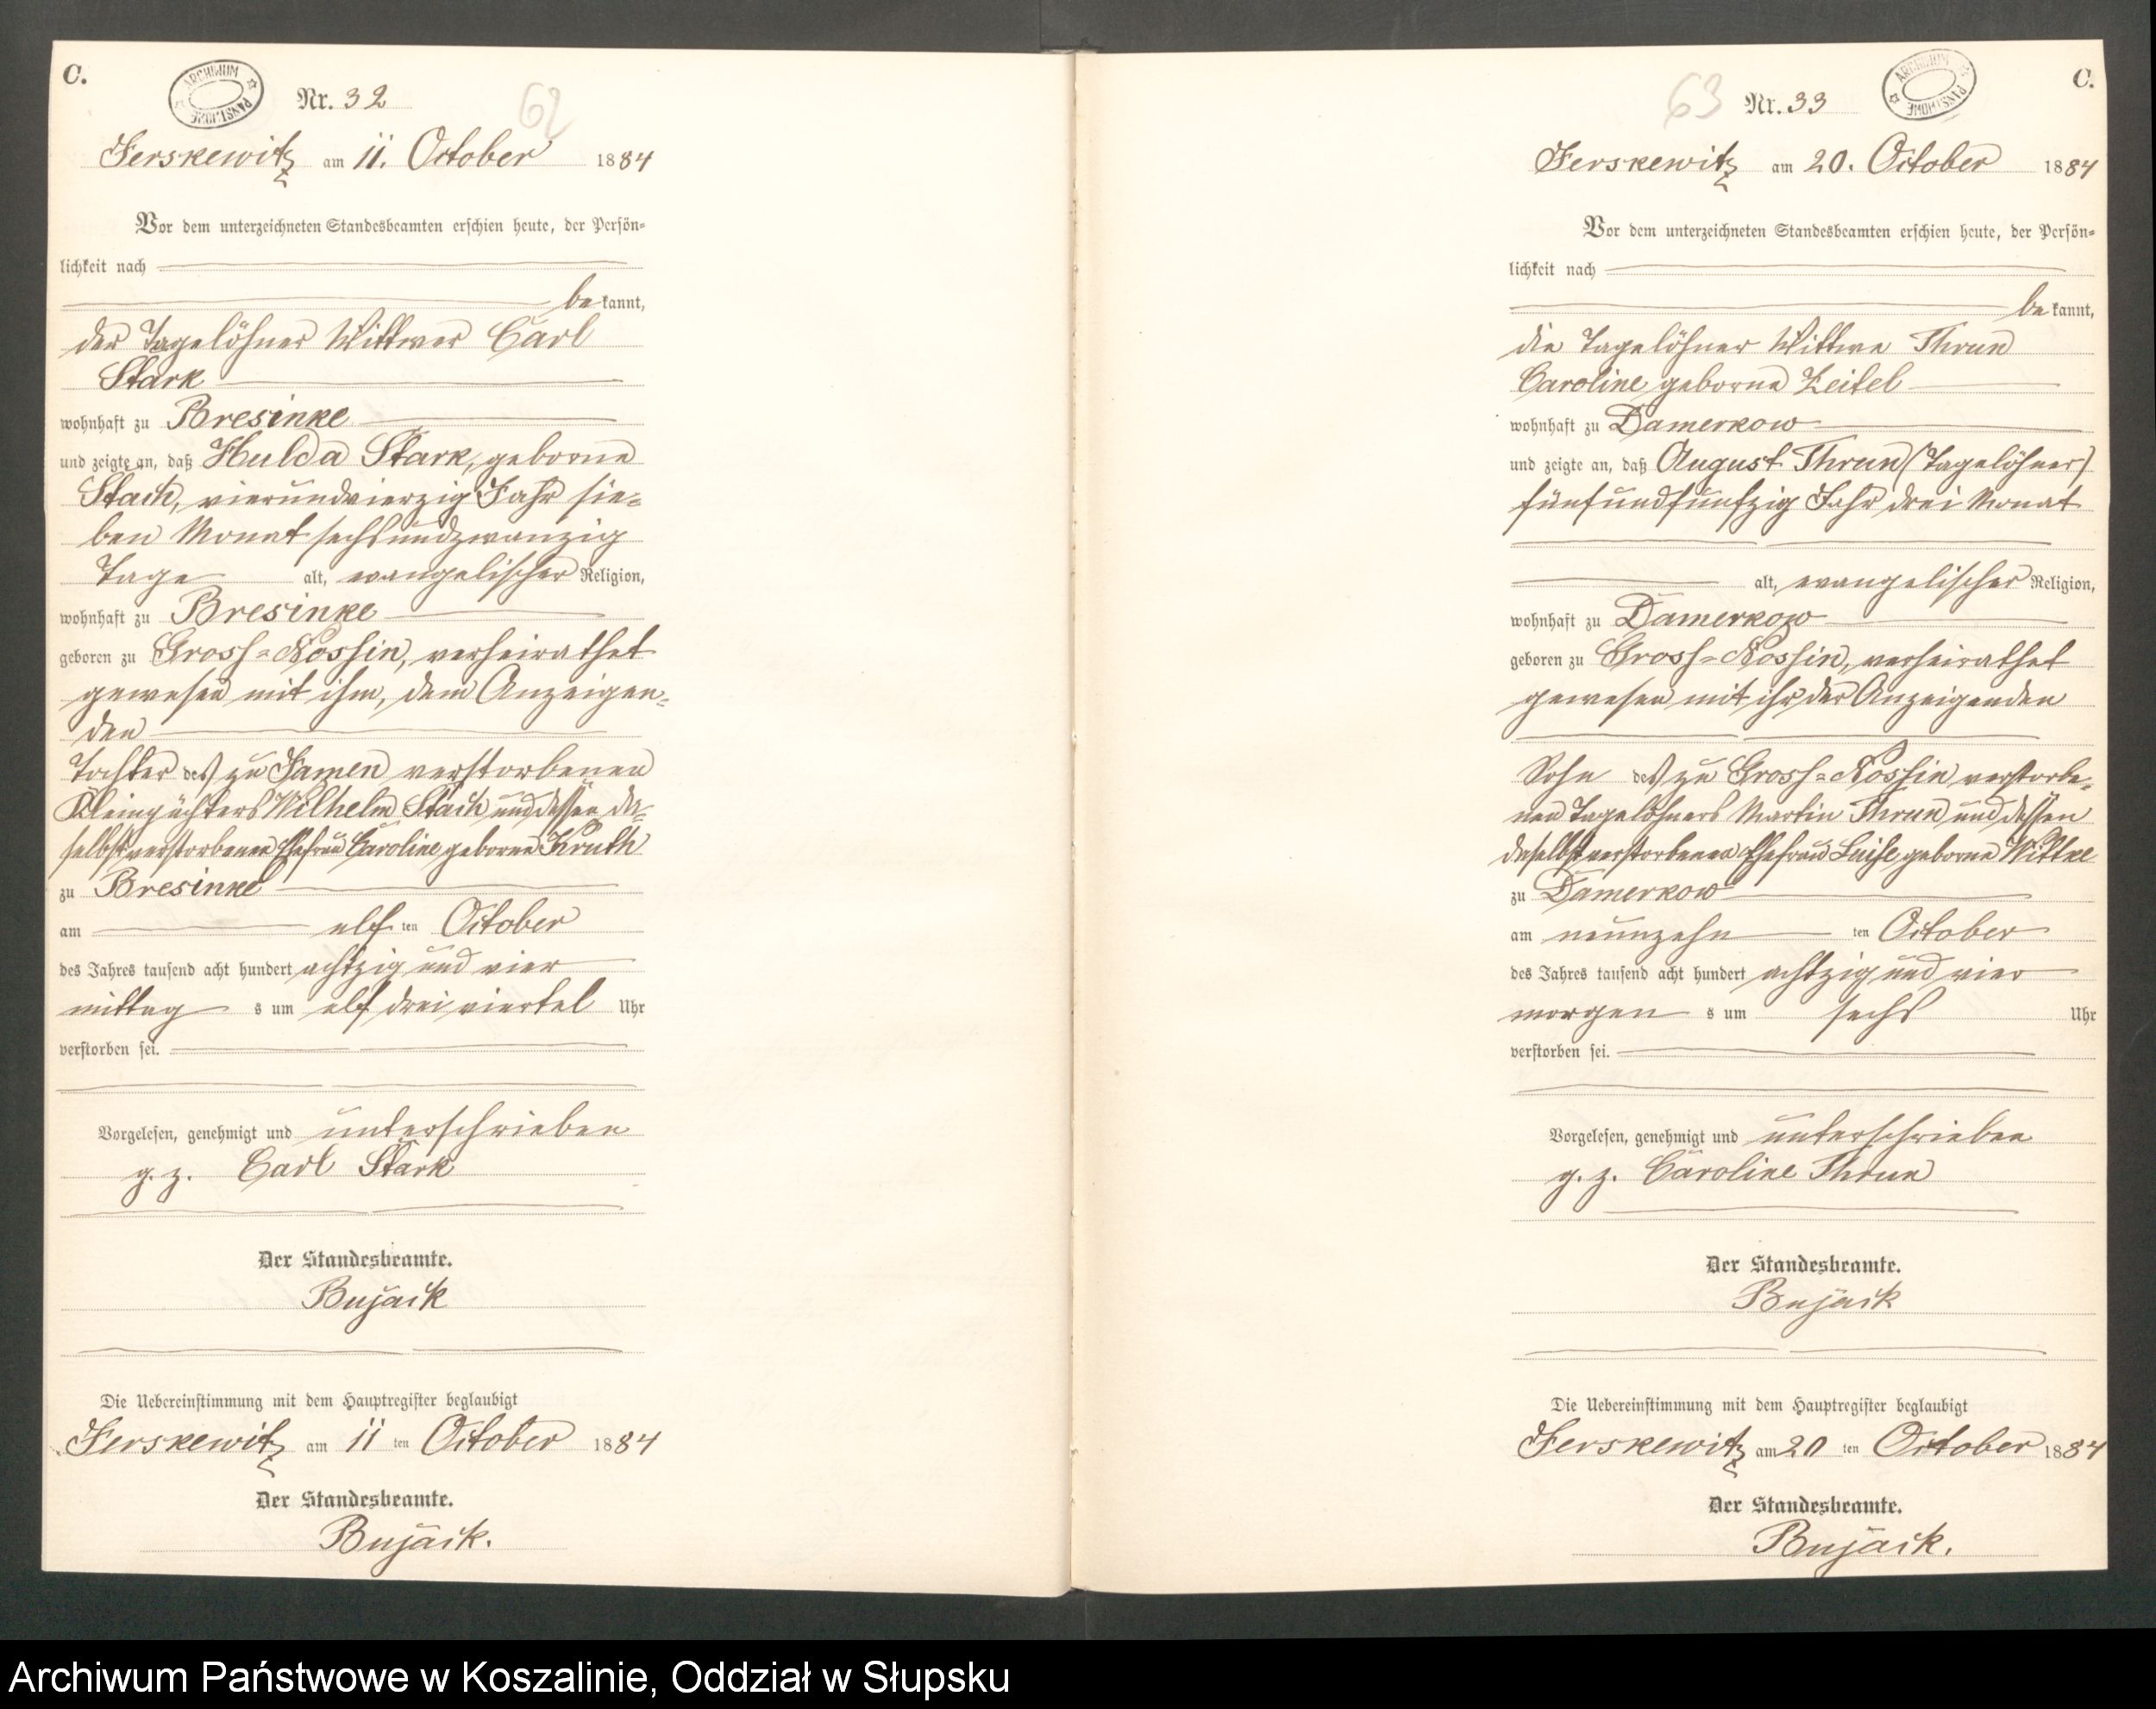 C.
ARCHIWUM PAŃSTWOWE
Nr. 32
62
Jerskewitz am 11. October 1884
Vor dem unterzeichneten Standesbeamten erschien heute, der Persön-
lichkeit nach
be kannt,
der Tagelöhner Wittwer Carl
Stark
wohnhaft zu Bresinke
und zeigte an, daß Hulda Stark, geborne
Stach, vierundvierzig Jahr sie-
ben Monat sechsundzwanzig
Tage alt, evangelischer Religion,
wohnhaft zu Bresinke
geboren zu Gross-Nossin, verheirathet
gewesen mit ihm, dem Anzeigen-
den
Tochter des zu Jamen verstorbenen
Kleinpächters Wilhelm Stach und dessen da-
selbst verstorbenen Ehefrau Caroline geborne Kruth
zu Bresinke
am elf ten October
des Jahres tausend acht hundert achtzig und vier
mittag s um elf drei viertel Uhr
verstorben sei.
Vorgelesen, genehmigt und unterschrieben
g. z. Carl Stark
Der Standesbeamte.
Bujack
Die Uebereinstimmung mit dem Hauptregister beglaubigt
Jerskewitz am 11 ten October 1884
Der Standesbeamte.
Bujack.
C.
ARCHIWUM PAŃSTWOWE
63
Nr. 33
Jerskewitz am 20. October 1884
Vor dem unterzeichneten Standesbeamten erschien heute, der Persön-
lichkeit nach
be kannt,
die Tagelöhner Wittwe Thrun
Caroline geborne Zeitel
wohnhaft zu Damerkow
und zeigte an, daß August Thrun (Tagelöhner)
fünfundfunfzig Jahr drei Monat
alt, evangelischer Religion,
wohnhaft zu Damerkow
geboren zu Gross-Nossin, verheirathet
gewesen mit ihr der Anzeigenden
Sohn des zu Gross-Nossin verstorbe-
nen Tagelöhners Martin Thrun und dessen
daselbst verstorbenen Ehefrau Luise geborne Wittke
zu Damerkow
am neunzehn ten October
des Jahres tausend acht hundert achtzig und vier
morgen s um sechs Uhr
verstorben sei.
Vorgelesen, genehmigt und unterschrieben
g. z. Caroline Thrun
Der Standesbeamte.
Bujack
Die Uebereinstimmung mit dem Hauptregister beglaubigt
Jerskewitz am 20 ten October 1884
Der Standesbeamte.
Bujack.
Archiwum Państwowe w Koszalinie, Oddział w Słupsku